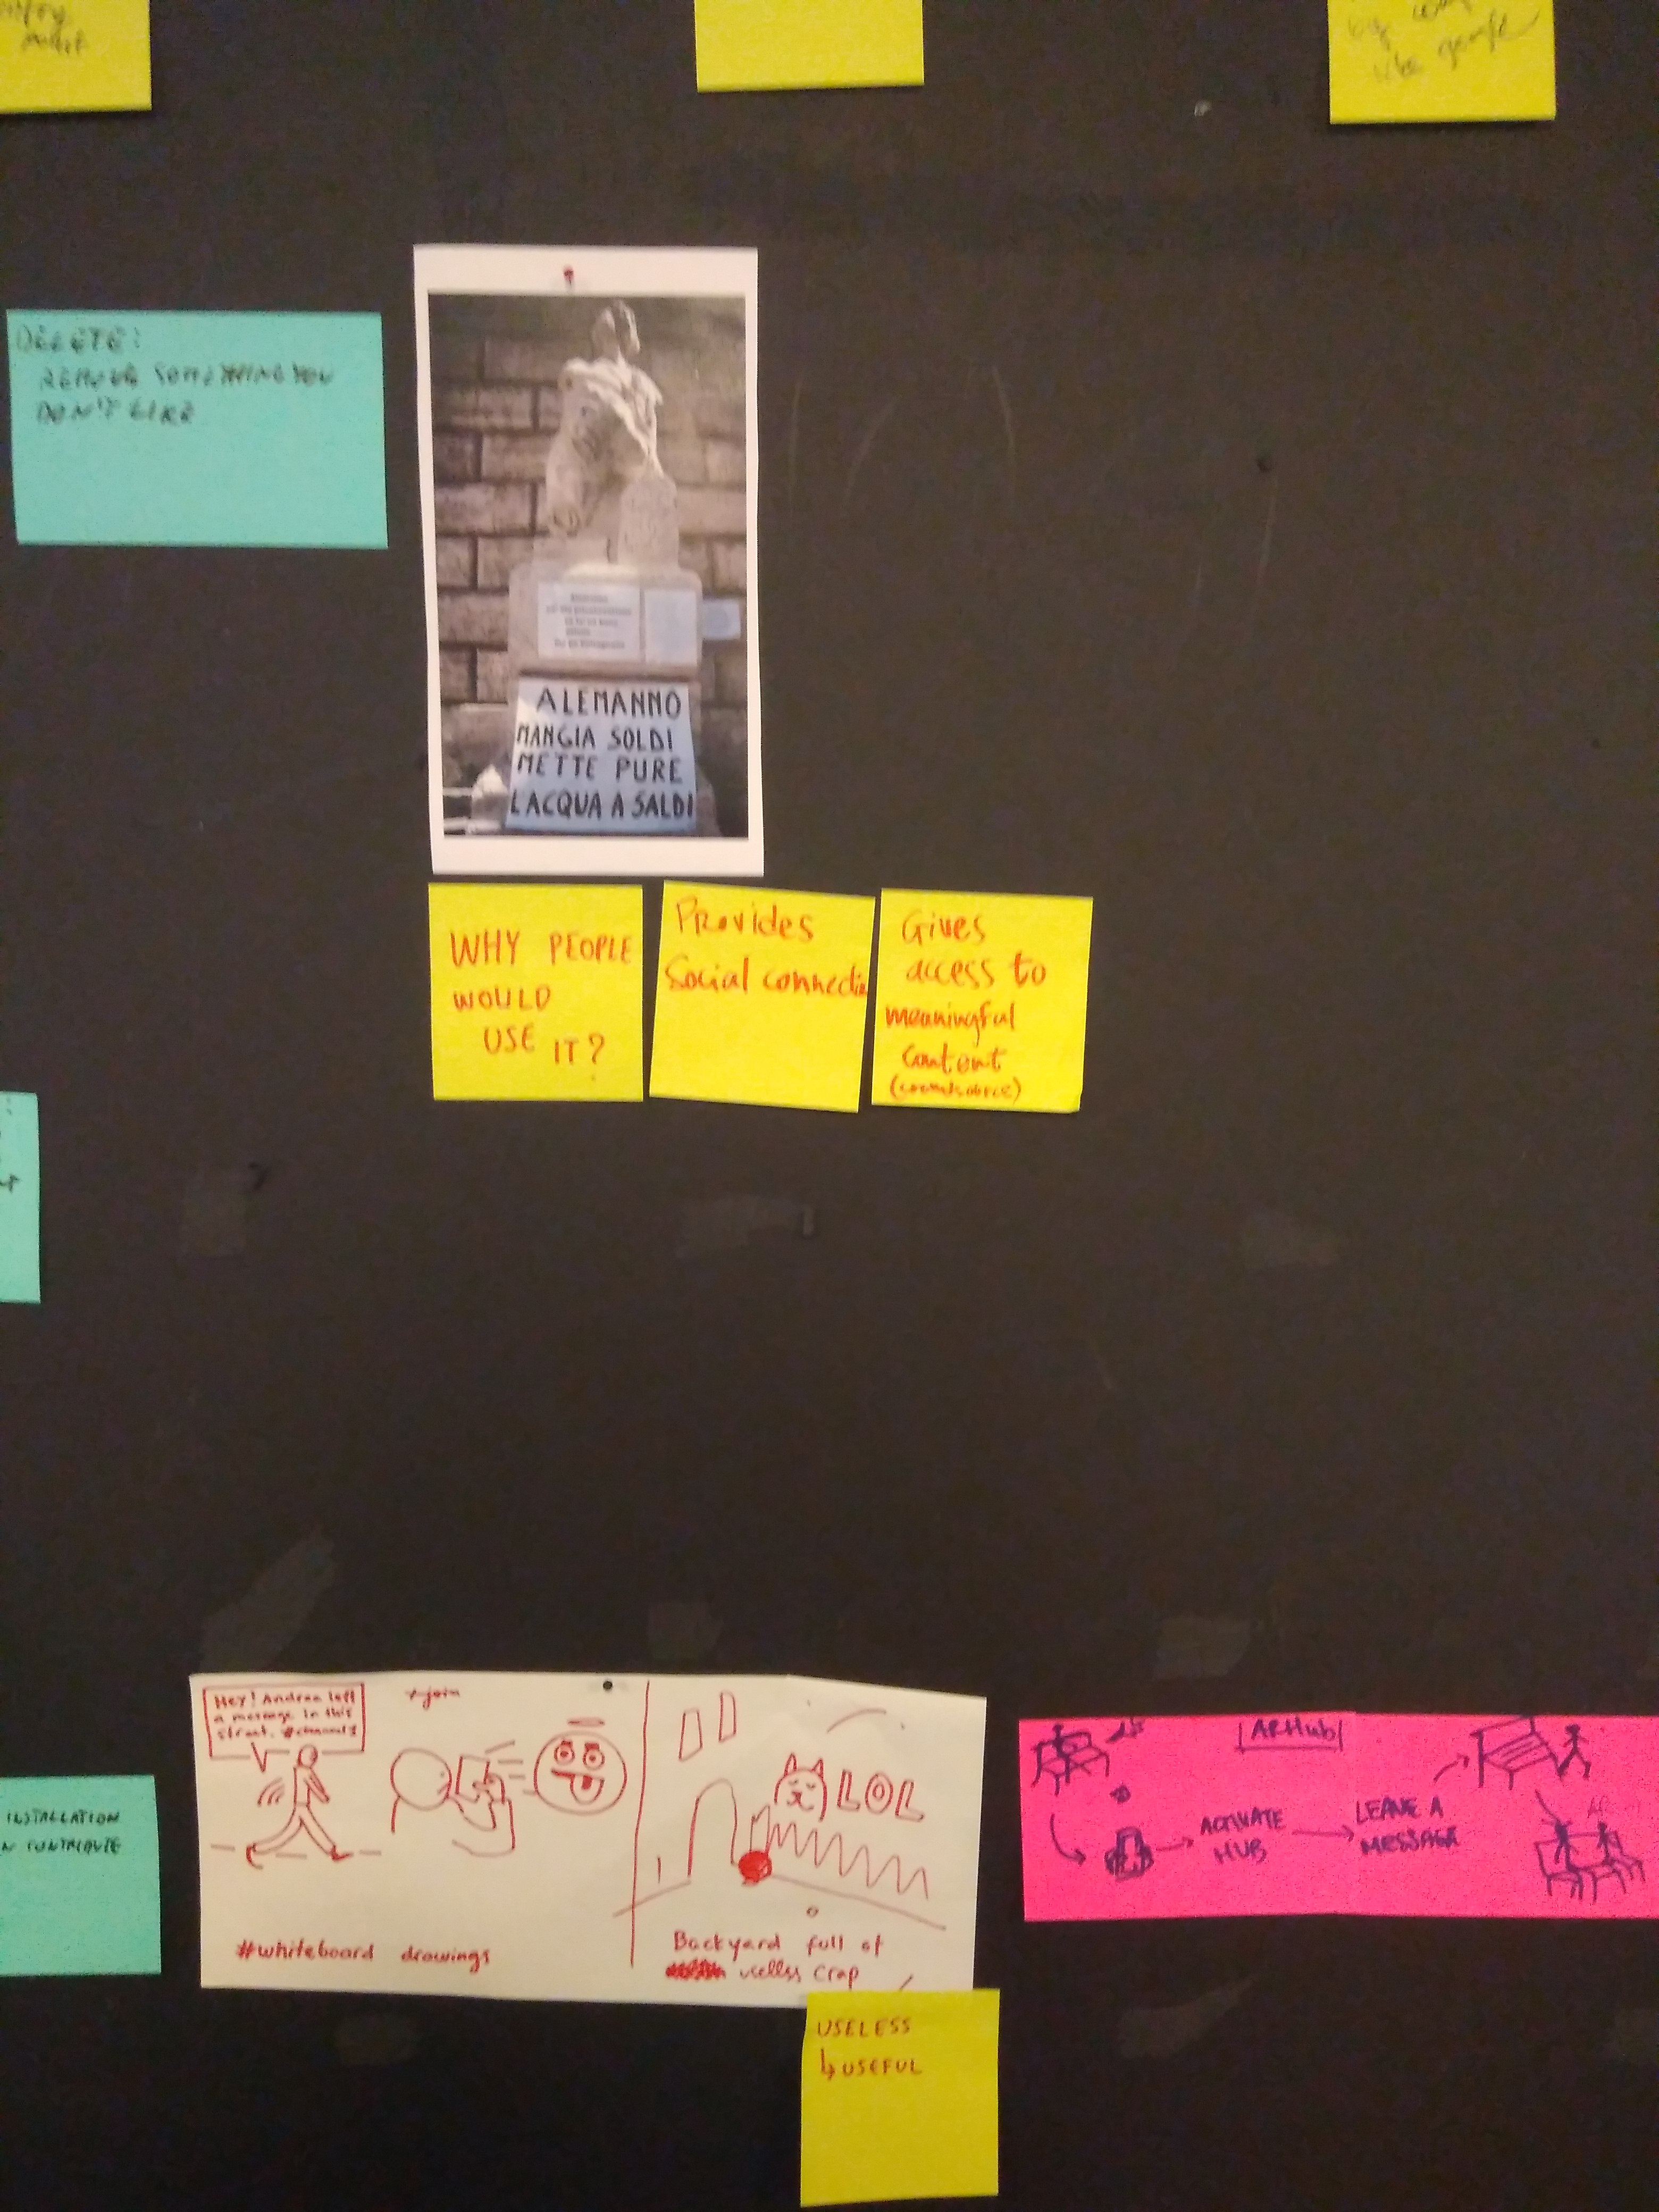 by
like people
DELETE:
REMOVE SOMETHING YOU
DON'T LIKE
ALEMANNO
MANGIA SOLDI
METTE PURE
L'ACQUA A SALDI
WHY PEOPLE
WOULD
USE IT?
Provides
Social connectio
Gives
access to
meaningful
Content
(crowdsource)
Hey! Andrea left
a message in this
street.
+join
LOL
#whiteboard drawings
Backyard full of
useless crap
ARHub
ACTIVATE
HUB
LEAVE A
MESSAGE
INSTALLATION
N CONTRIBUTE
USELESS
↳ USEFUL